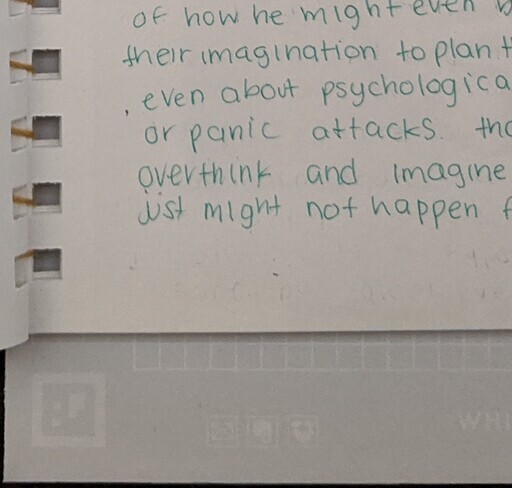 of how he might even
their imagination to plan
, even about psychologica
or panic attacks. tho
overthink and imagine
just might not happen f
WHI